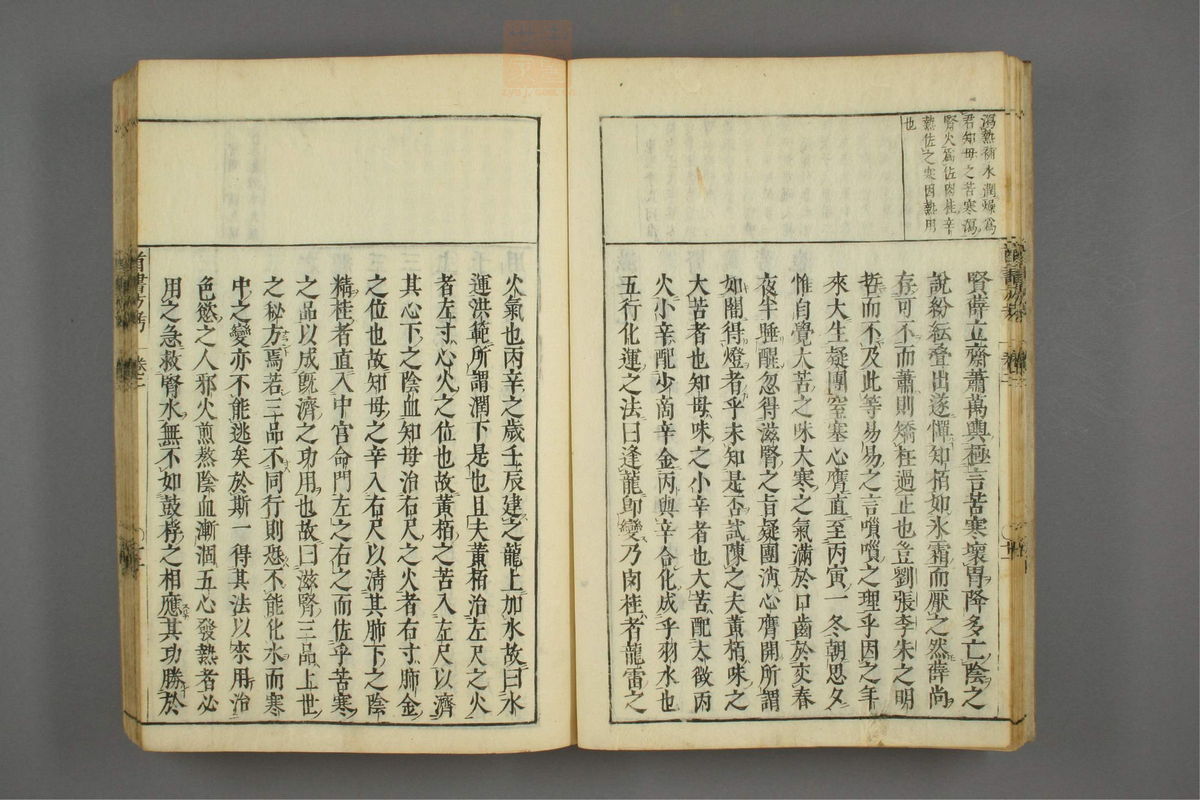 瀉熱補水潤燥爲
君知母之苦寒瀉
腎火爲佐肉桂辛
熱佐之寒因熱用
也
賢薛立齋蕭萬輿極言苦寒壞胃降多亡陰之
說紛紜叠出遂憚知栢如氷霜而厭之然薛尚
存可不而蕭則矯枉過正也豈劉張李朱之明
哲而不及此等易易之言嗩嗩之理乎因之年
來大生疑團窒塞心膺直至丙寅一冬朝思夕
惟自覺大苦之味大寒之氣滿於口齒於爽春
夜半睡醒忽得滋腎之旨疑團消心膺開所謂
如闇得燈者乎未知是否試陳之夫黃栢味之
大苦者也知母味之小辛者也大苦配太徵丙
火小辛配少商辛金丙與辛合化成乎羽水也
五行化運之法曰逢龍卽變乃肉桂者龍雷之
火氣也丙辛之歲壬辰建之龍上加水故曰水
運洪範所謂潤下是也且夫黃栢治左尺之火
者左寸心火之位也故黃栢之苦入左尺以濟
其心下之陰血知母治右尺之火者右寸肺金
之位也故知母之辛入右尺以淸其肺下之陰
精桂者直入中宮命門左之右之而佐乎苦寒
之品以成旣濟之功用也故曰滋腎三品上世
之秘方焉若三品不同行則恐不能化水而寒
中之變亦不能逃矣於斯一得其法以來用治
色慾之人邪火煎熬陰血漸涸五心發熱者必
用之急救腎水無不如鼓桴之相應其功勝於
卷三